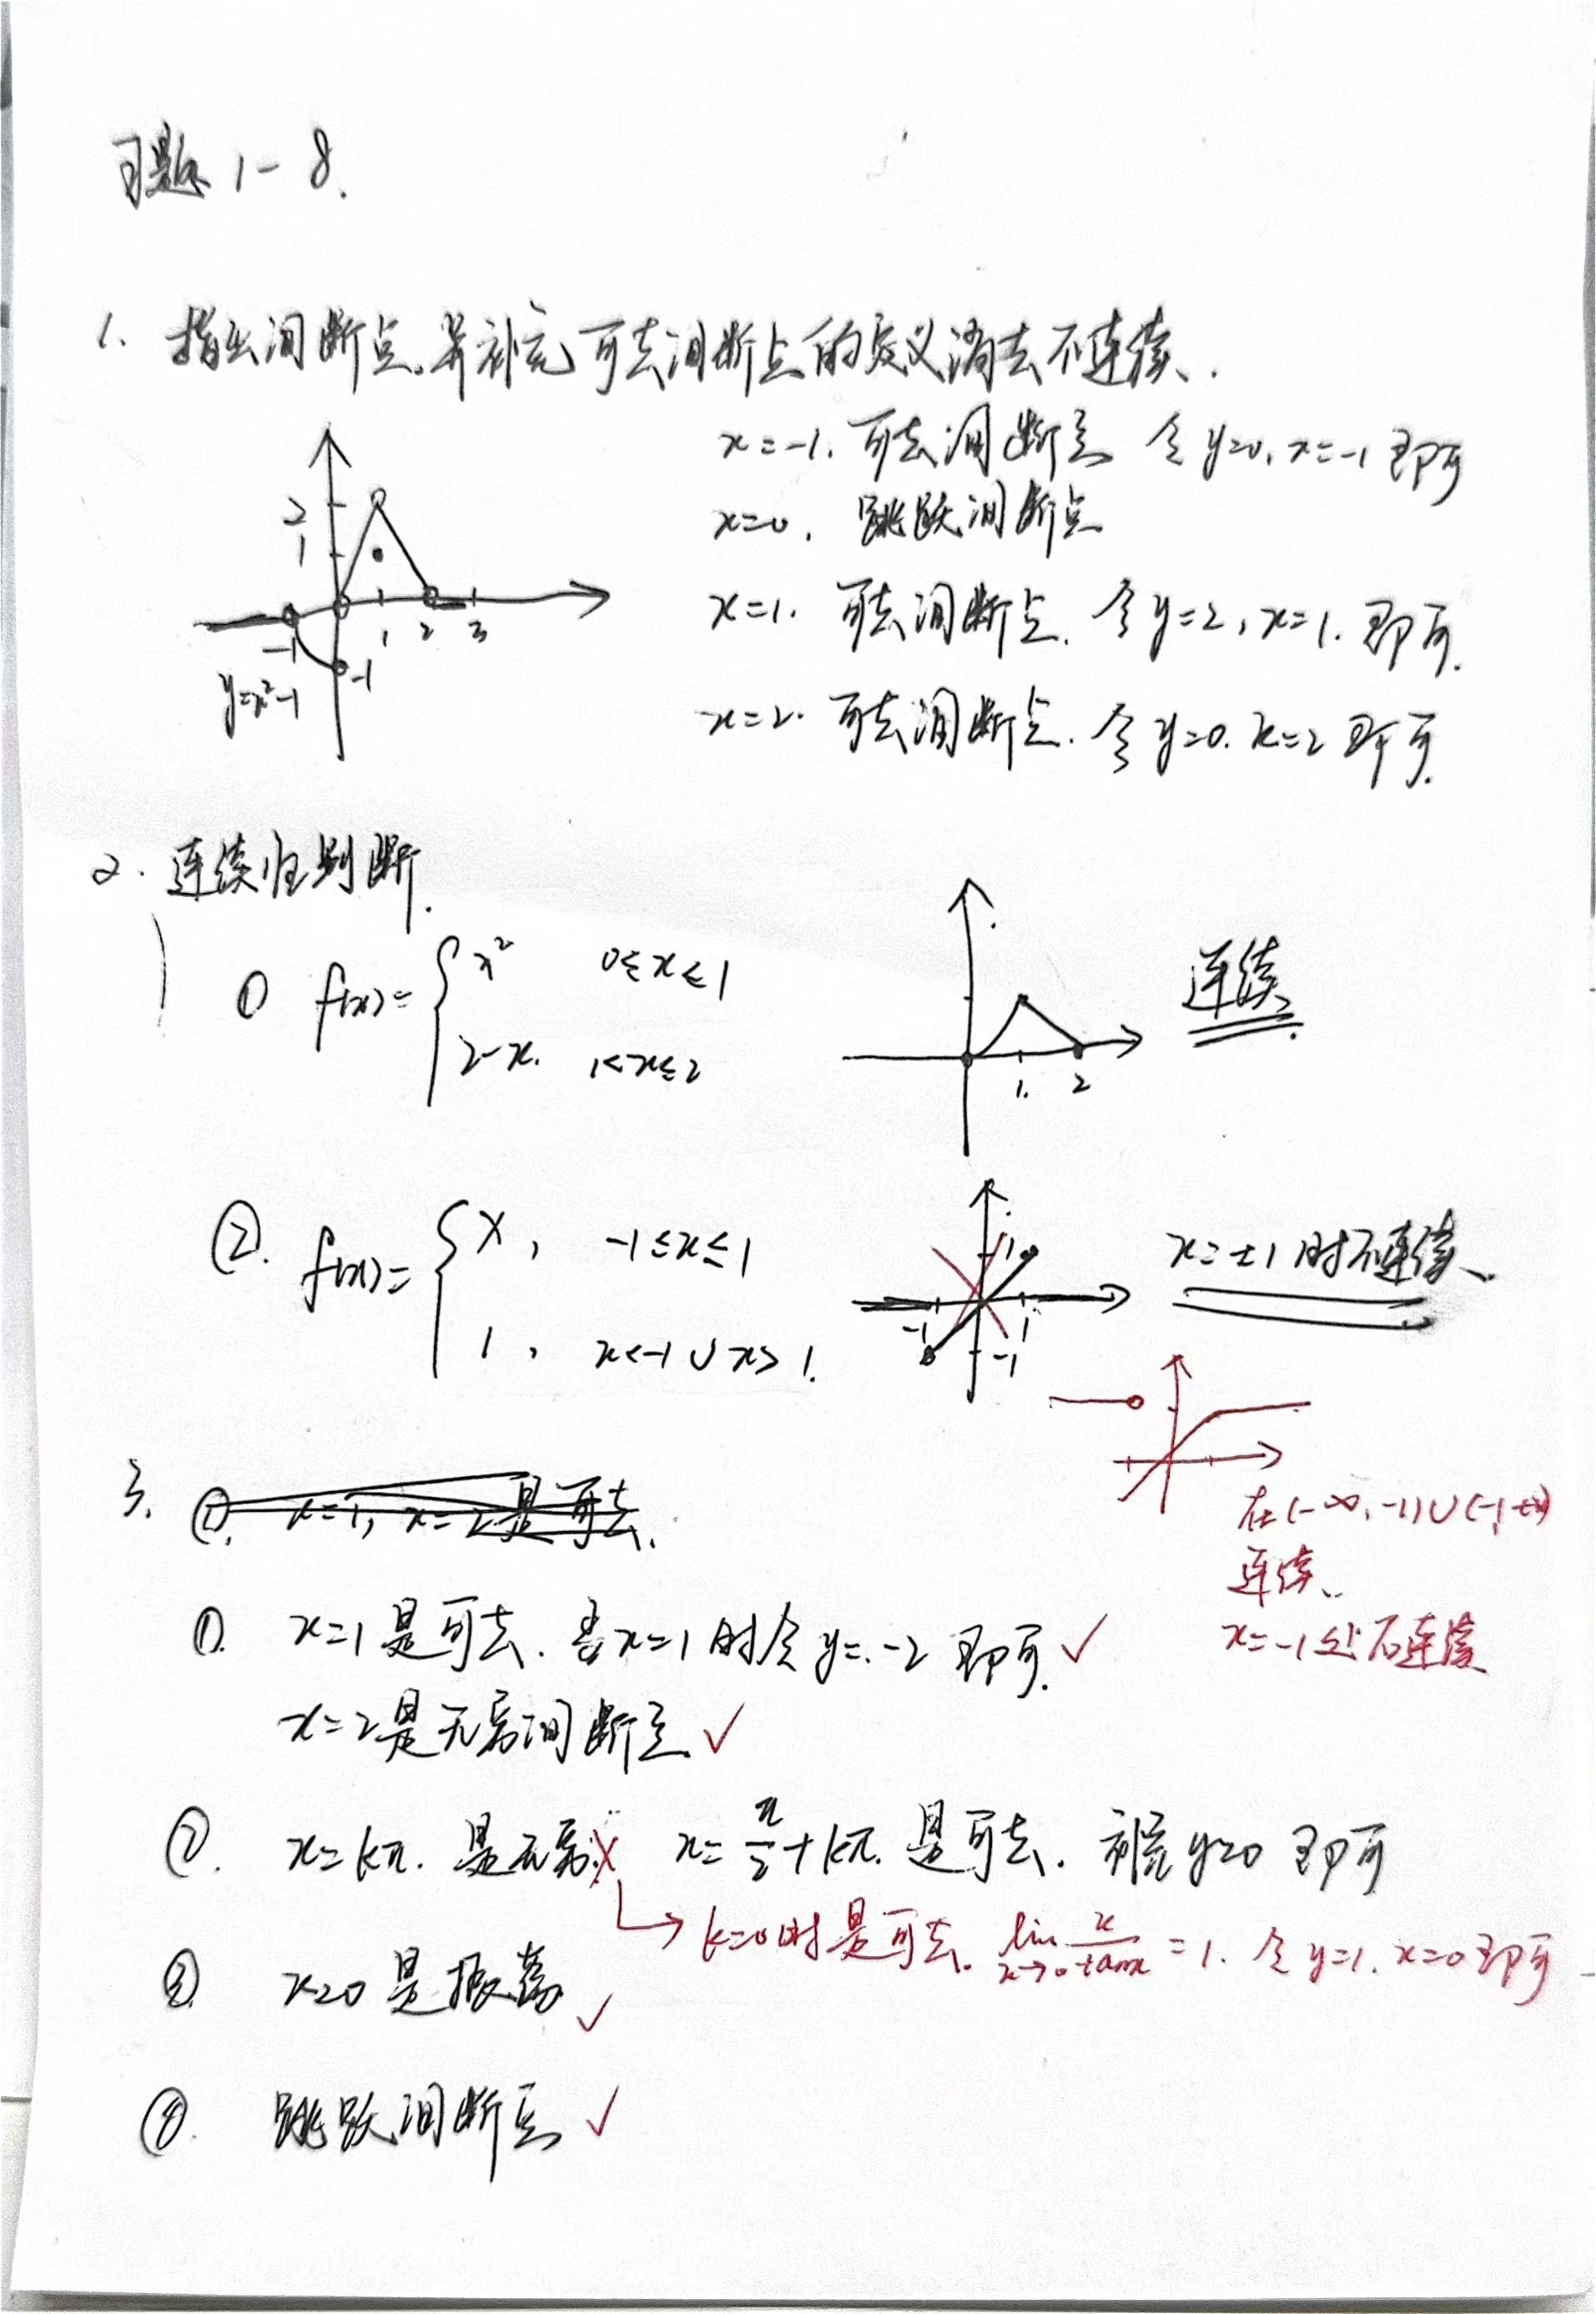 习题 1-8.
1. 指出间断点.并补充可去间断点的定义消去不连续.
x=-1. 可去间断点 令y=0, x=-1即可
x=0. 跳跃间断点
x=1. 可去间断点. 令y=2, x=1. 即可.
x=2. 可去间断点. 令y=0. x=2即可.
2
1
-1
1 2 3
-1
y=x²-1
2. 连续性判断.
① f(x)= { x² 0≤x≤1
2-x. 1<x≤2
1. 2
连续.
② f(x)= { x, -1≤x≤1
1, x<-1∪x>1.
1
-1 1
-1
x=±1时不连续.
在(-∞,-1)∪(-1,+∞)
连续.
x=-1处不连续
3. ①. x=1, x=2是可去.
①. x=1是可去. 当x=1时令y=-2即可. ✓
x=2是无穷间断点. ✓
②. x=kπ. 是无穷. × x=π/2+kπ. 是可去. 补充y=0即可
→ k=0时是可去. lim x→0 x/tanx =1. 令y=1. x=0即可
③. x=0是振荡 ✓
④. 跳跃间断点 ✓